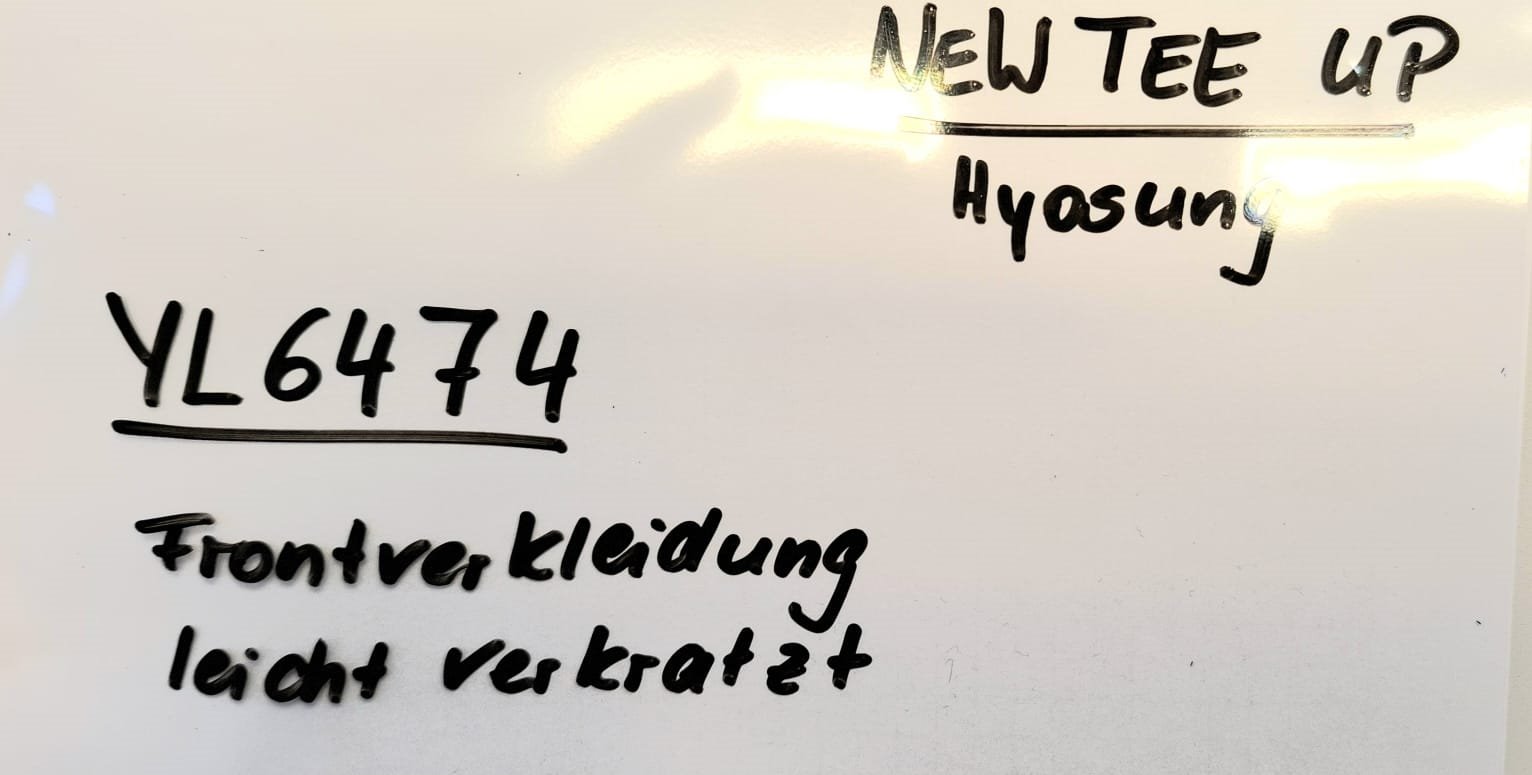 NEW TEE UP
Hyosung
YL6474
Frontverkleidung
leicht verkratzt